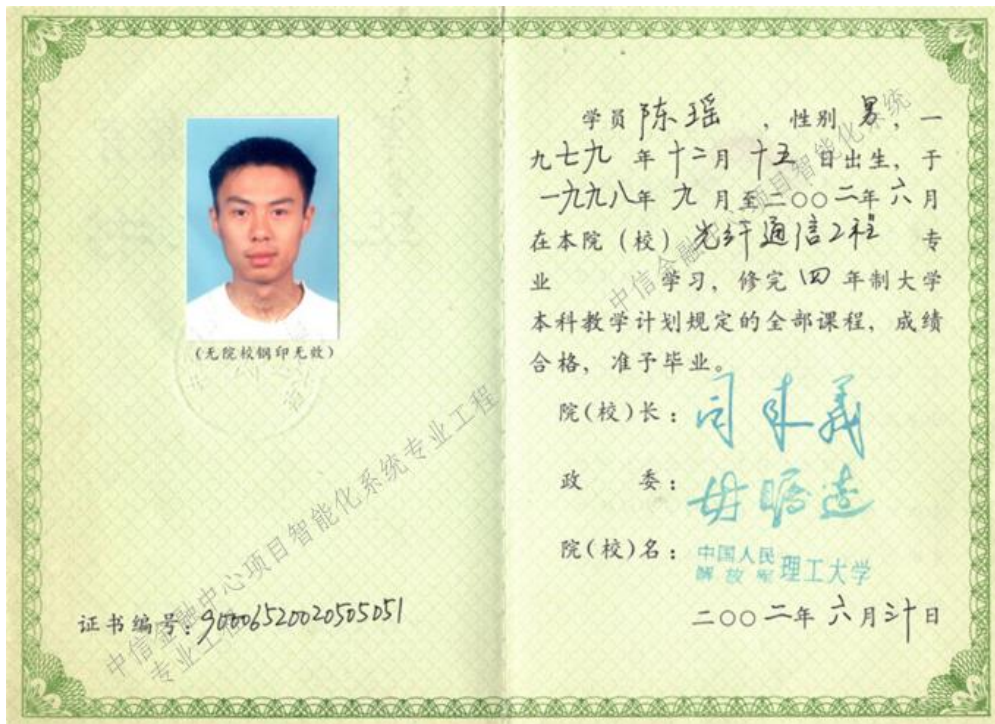 (无院校钢印无效)
证书编号:90006520020505051
中信金融中心项目智能化系统专业工程
专业工程
学员 陈瑶 ,性别 男,一
九七九 年 十二 月 十五 日出生,于
一九九八年 九 月至二〇〇二年六月
在本院(校) 光纤通信工程 专
业 学习,修完 四 年制大学
本科教学计划规定的全部课程,成绩
合格,准予毕业。
院(校)长:
政 委:
院(校)名: 中国人民解放军理工大学
二〇〇二年 六 月 三十 日
中信金融中心项目智能化系统